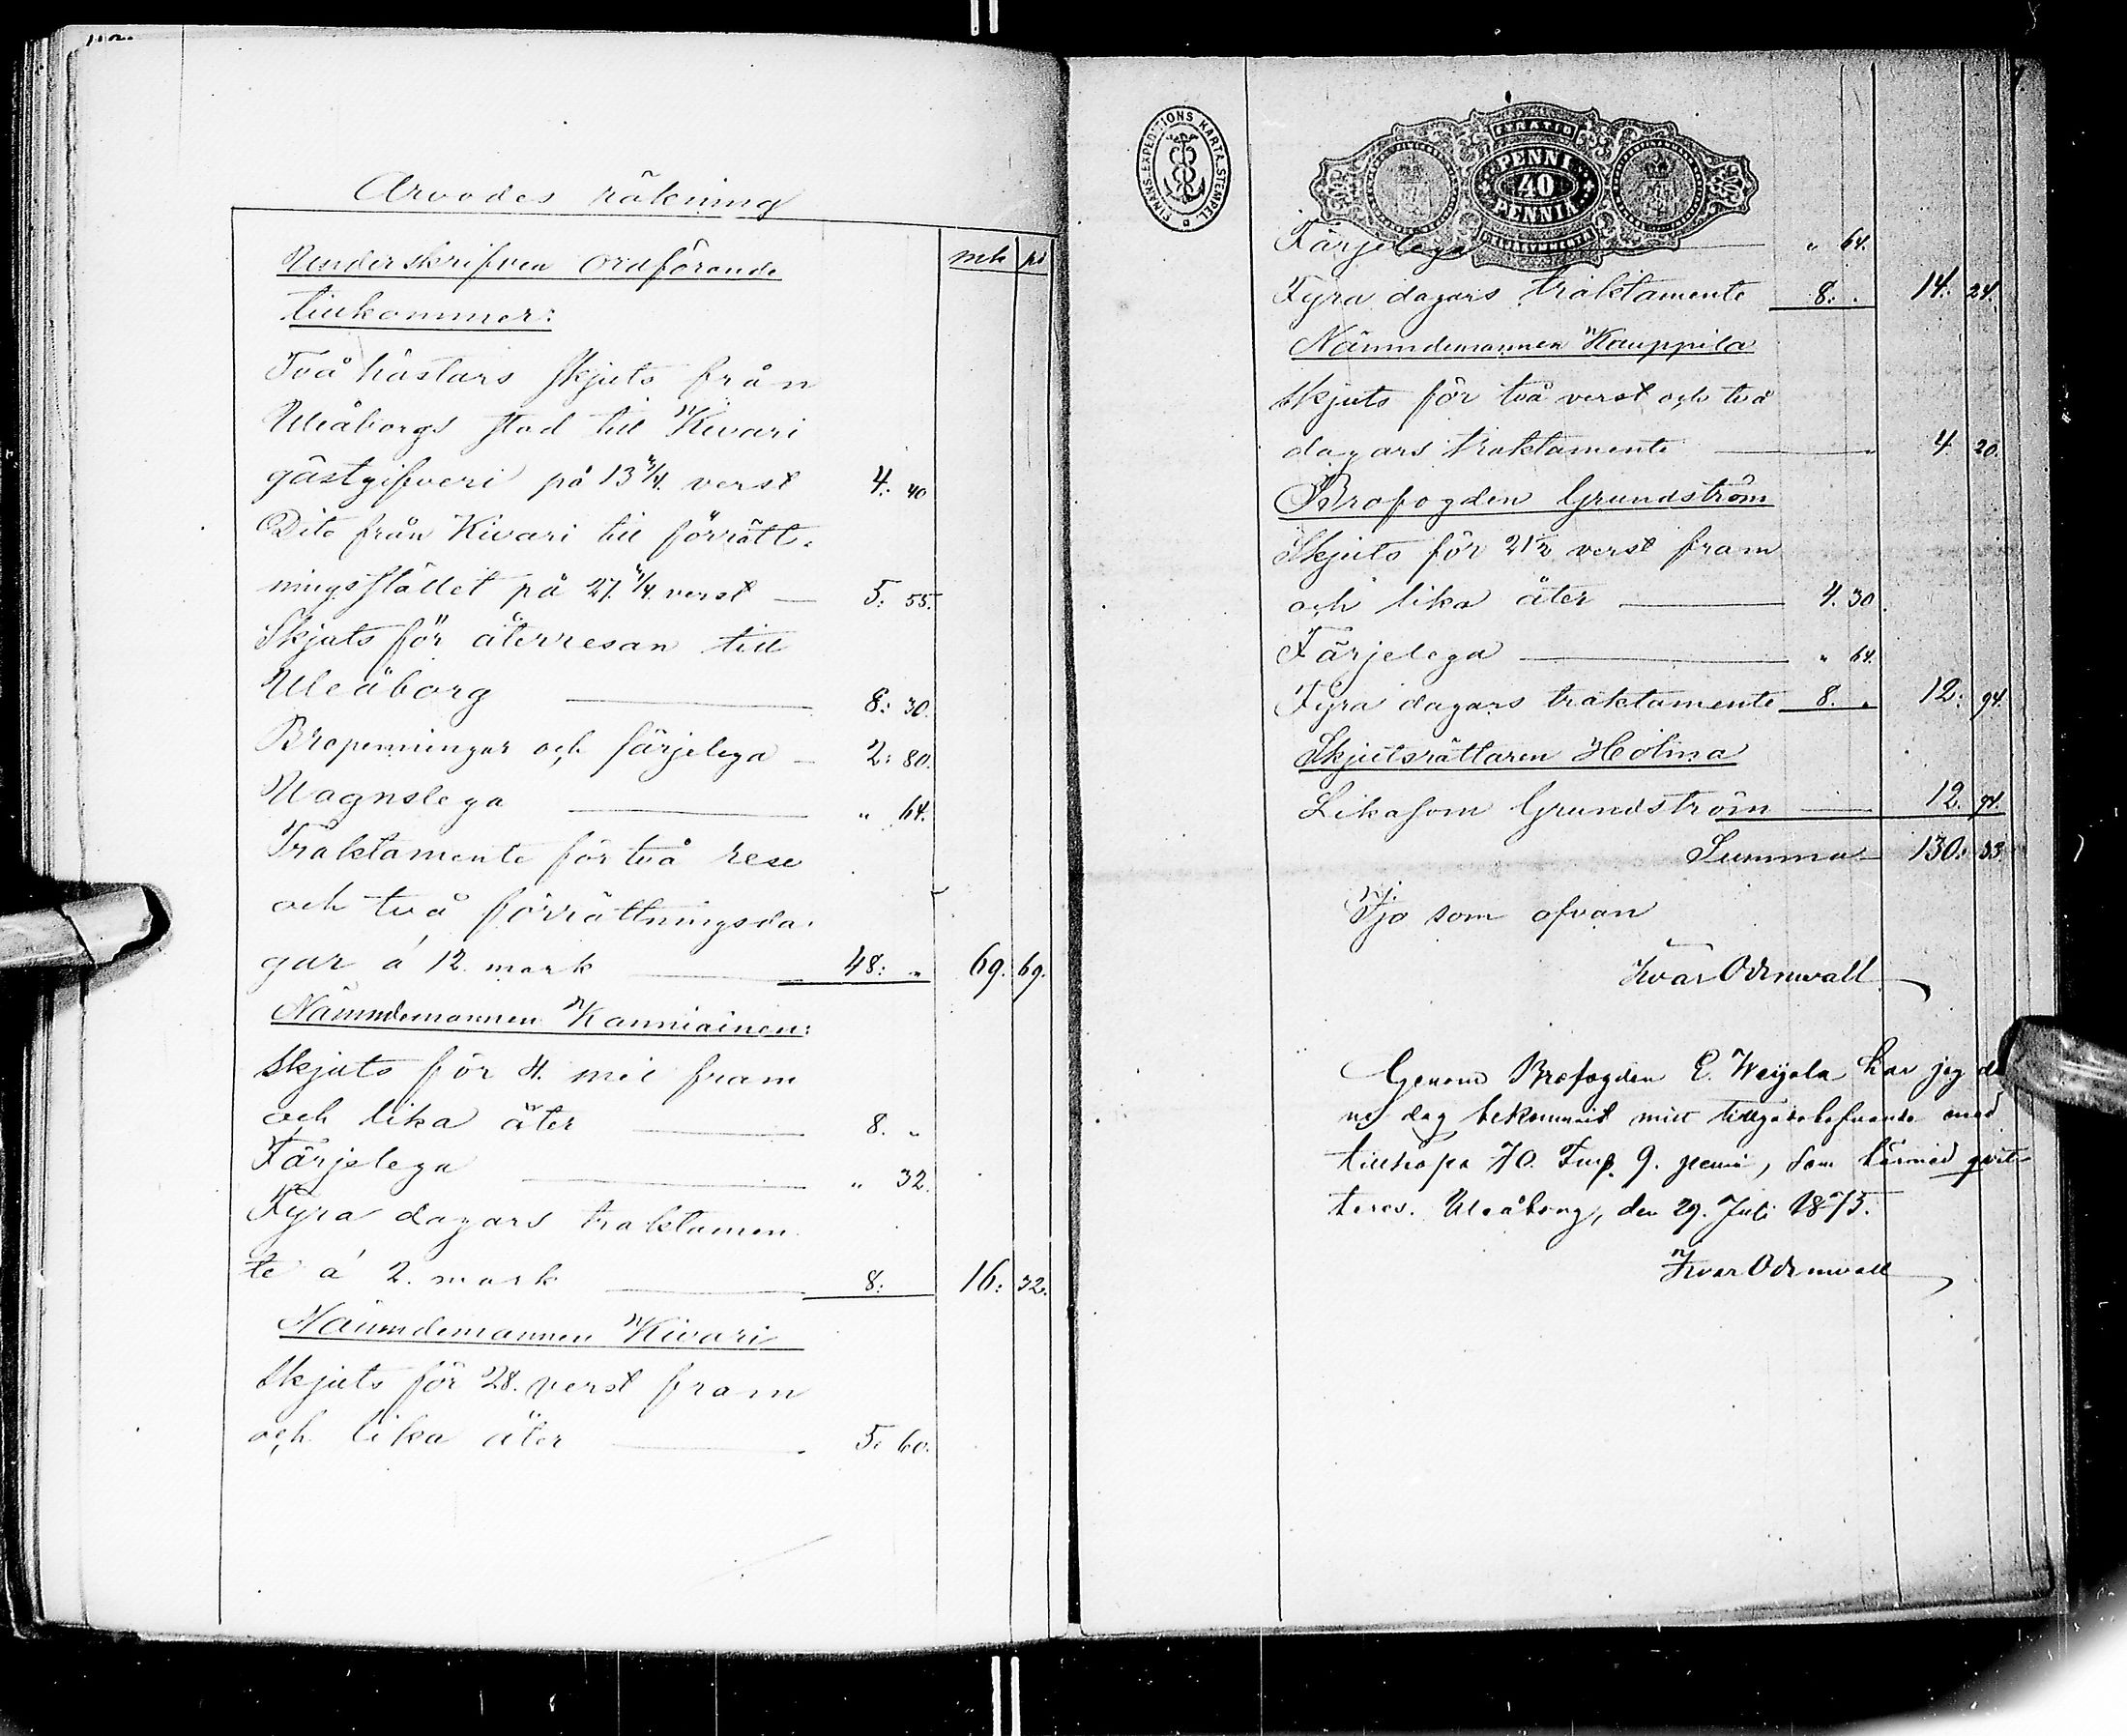 Arvodes räkning
mk pi
Underskrifven Ordförande
tillkommer:
Två hästars skjuts från
Uleåborgs stad till Kivari
gästgifveri på 13 1/4. verst 4: 40
Dito från Kivari till förrätt-
ningsstället på 27. 1/4. verst — 5: 55.
Skjuts för återresan till
Uleåborg — 8: 30.
Bropenningar och färjelega — 2: 80.
Wagnslega — " 64.
Traktamente för två rese
och två förrättningsda-
gar á 12 mark — 48: " 69. 69.
Nämndemannen Kanniainen:
skjuts för 4. mil fram
och lika åter — 8. "
Färjelega — " 32.
Fyra dagars traktamen
te á 2. mark — 8: 16: 32.
Nämndemannen Kivari
skjuts för 28. verst fram
och lika åter — 5: 60.
FINANS. EXPEDITIONS KARTA. STEMPEL.
FYRATIO
PENNI
40
PENNIÄ
Färjelega — " 64.
Fyra dagars traktamente 8: . 14: 24.
Nämndemannen Kauppila
skjuts för två verst och två
dagars traktamente — 4. 20.
Brofogden Grundström
Skjuts för 21 1/2 verst fram
och lika åter — 4. 30.
Färjelega — " 64.
Fyra dagars traktamente 8. " 12: 94.
Skjutsrättaren Holma
Likasom Grundström — 12. 94.
Summa — 130: 33
Ijo som ofvan
Ivar Odenwall
Genom Brofogden E. Weijola har jag de
ne dag bekommit mitt tillgodohafvande med
tillhopa 70. Fmk. 9. penni, som härmed qvit-
teres. Uleåborg, den 29. Juli 1875.
Ivar Odenwall